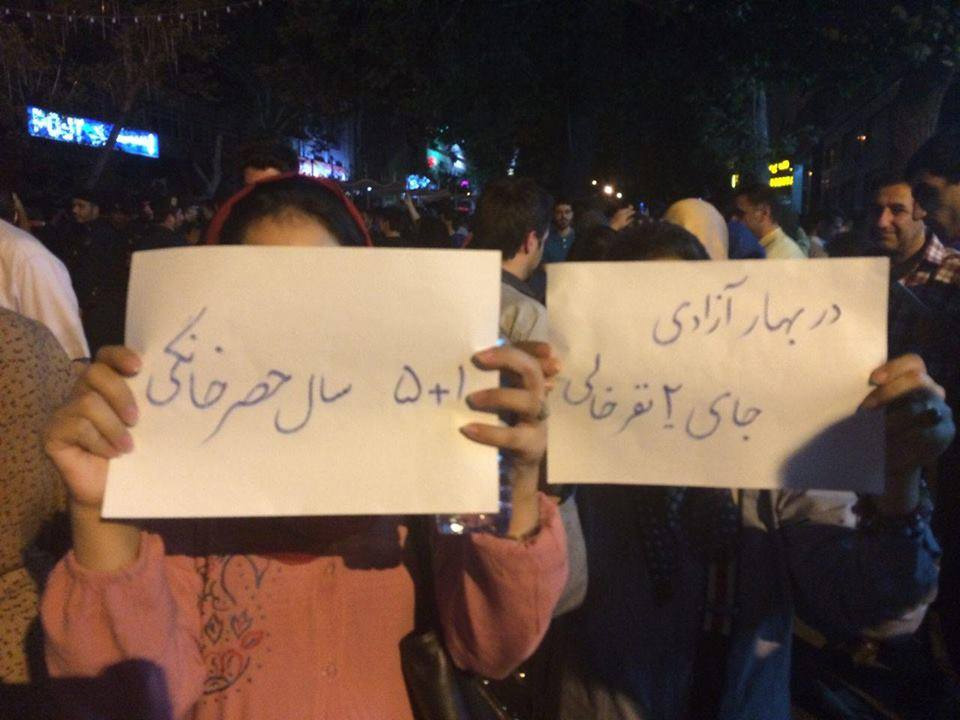 در بهار آزادی
جای ۲ نفر خالی
۱+۵ سال حصر خانگی
POST